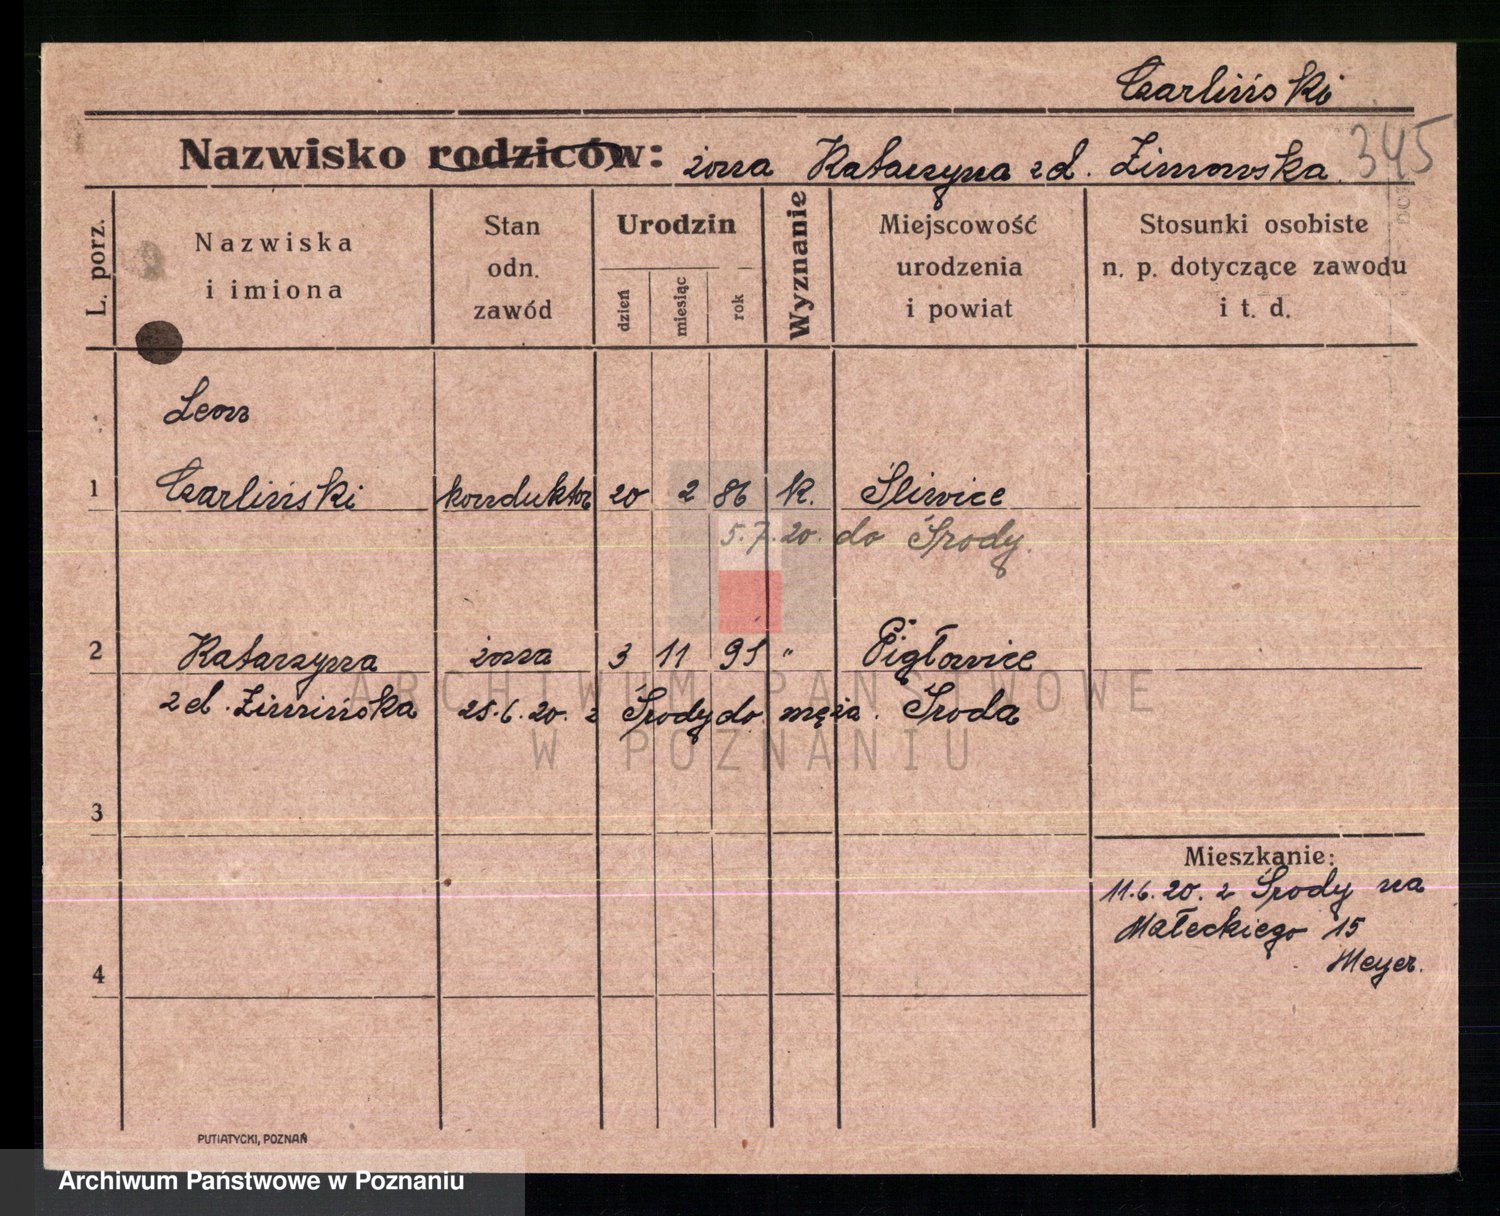 Czarliński
Nazwisko rodziców: żona Katarzyna zd. Zimowska 345
L. porz.
Nazwiska
i imiona
Stan
odn.
zawód
Urodzin
dzień
miesiąc
rok
Wyznanie
Miejscowość
urodzenia
i powiat
Stosunki osobiste
n. p. dotyczące zawodu
i t. d.
Leon
1 Czarliński konduktor 20 2 86 k. Śliwice
5.7.20. do Środy.
2 Katarzyna żona 3 11 95 " Pigłowice
zd. Zimińska 25.6.20. z Środy do męża. Środa
3
Mieszkanie:
11.6.20. z Środy na
Małeckiego 15
Meyer.
4
PUTIATYCKI, POZNAŃ
ARCHIWUM PAŃSTWOWE
W POZNANIU
Archiwum Państwowe w Poznaniu